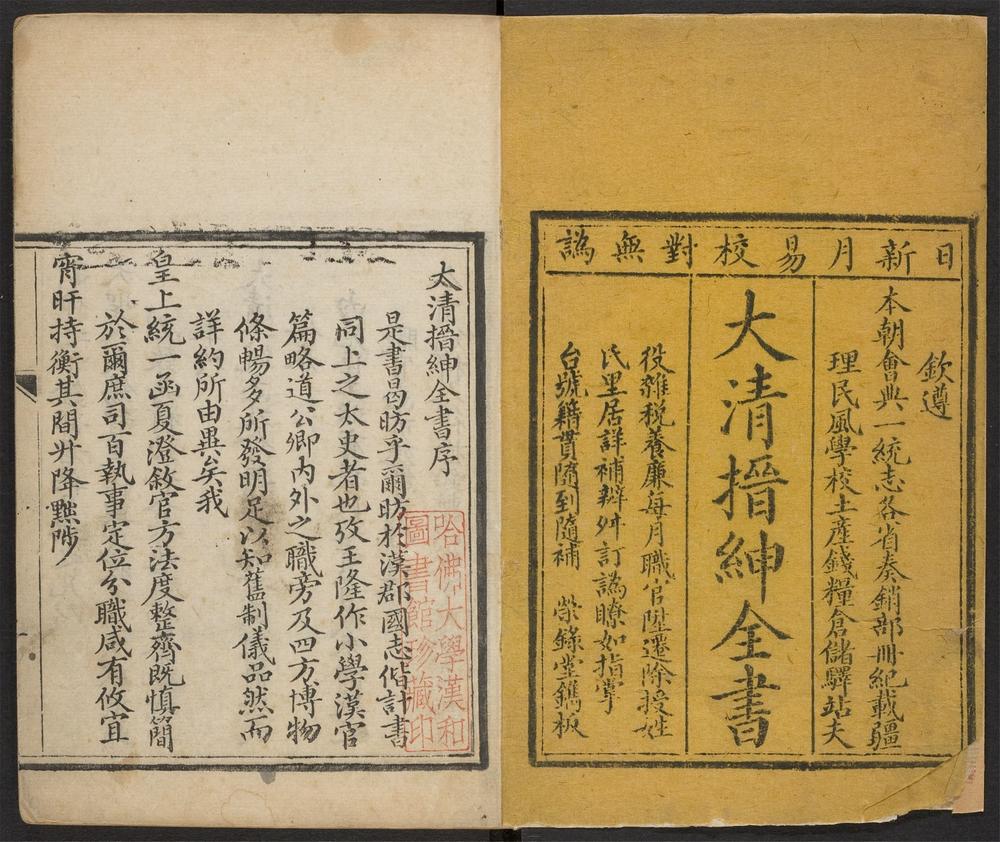 日新月易校對無譌
欽遵
本朝會典一統志各省奏銷部冊紀載疆
理民風學校土產錢糧倉儲驛站夫
大清搢紳全書
役雜稅養廉每月職官陞遷除授姓
氏里居詳補辨舛訂譌瞭如指掌
台號籍貫隨到隨補 榮錄堂鐫板
大清搢紳全書序
是書曷昉乎爾昉於漢郡國志偕計書
同上之太史者也攷王隆作小學漢官
篇略道公卿內外之職旁及四方博物
條暢多所發明足以知舊制儀品然而
詳約所由異矣我
皇上統一函夏澄敘官方法度整齊既慎簡
於爾庶司百執事定位分職咸有攸宜
宵旰持衡其間升降黜陟
哈佛大學漢和
圖書館珍藏印